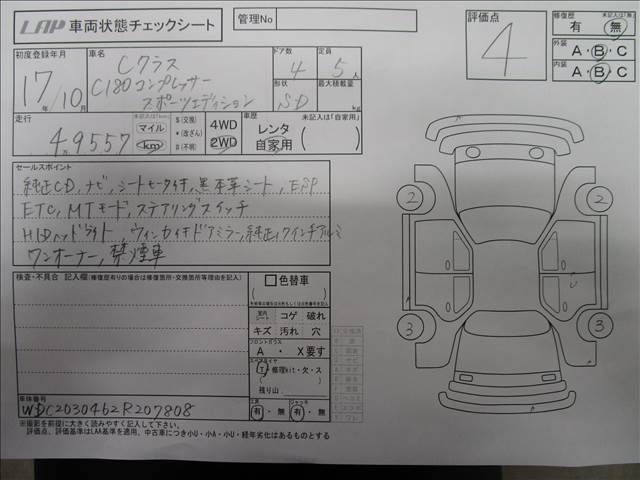 LAP 車両状態チェックシート
管理No
評価点
4
修復歴 未記入は「無」
有 無
外装
A・B・C
内装
A・B・C
初度登録年月
17年/10月
車名
Cクラス
C180コンプレッサー
スポーツエディション
ドア数
4
定員
5人
形状
SD
最大積載量
kg
走行
49557
未記入は「km」
マイル
km
$(交換)
*(改ざん)
#(不明)
4WD
2WD
車歴 未記入は「自家用」
レンタ
自家用
セールスポイント
純正CD,ナビ,シートヒータ付,黒本革シート,ESP
ETC,MTモード,ステアリングスイッチ
HIDヘッドライト,ウィンカー付ドアミラー,純正17インチアルミ
ワンオーナー,禁煙車
検査・不具合 記入欄(修復歴有りの場合は修復箇所・交換箇所等理由を記入)
色替車
室内
シート
コゲ 破れ
キズ 汚れ 穴
フロントガラス
A ・ X要す
スペアタイヤ
T・修理kit・欠・ス
残り山
工具
有・無
ジャッキ
有・無
車体番号
WDC2030462R207808
※撮影を前提に大きく読みやすく記入して下さい。
評価点、評価基準はLAA基準を適用、中古車につき小U・小A・小U・経年劣化はあるものとする
2
2
3
3